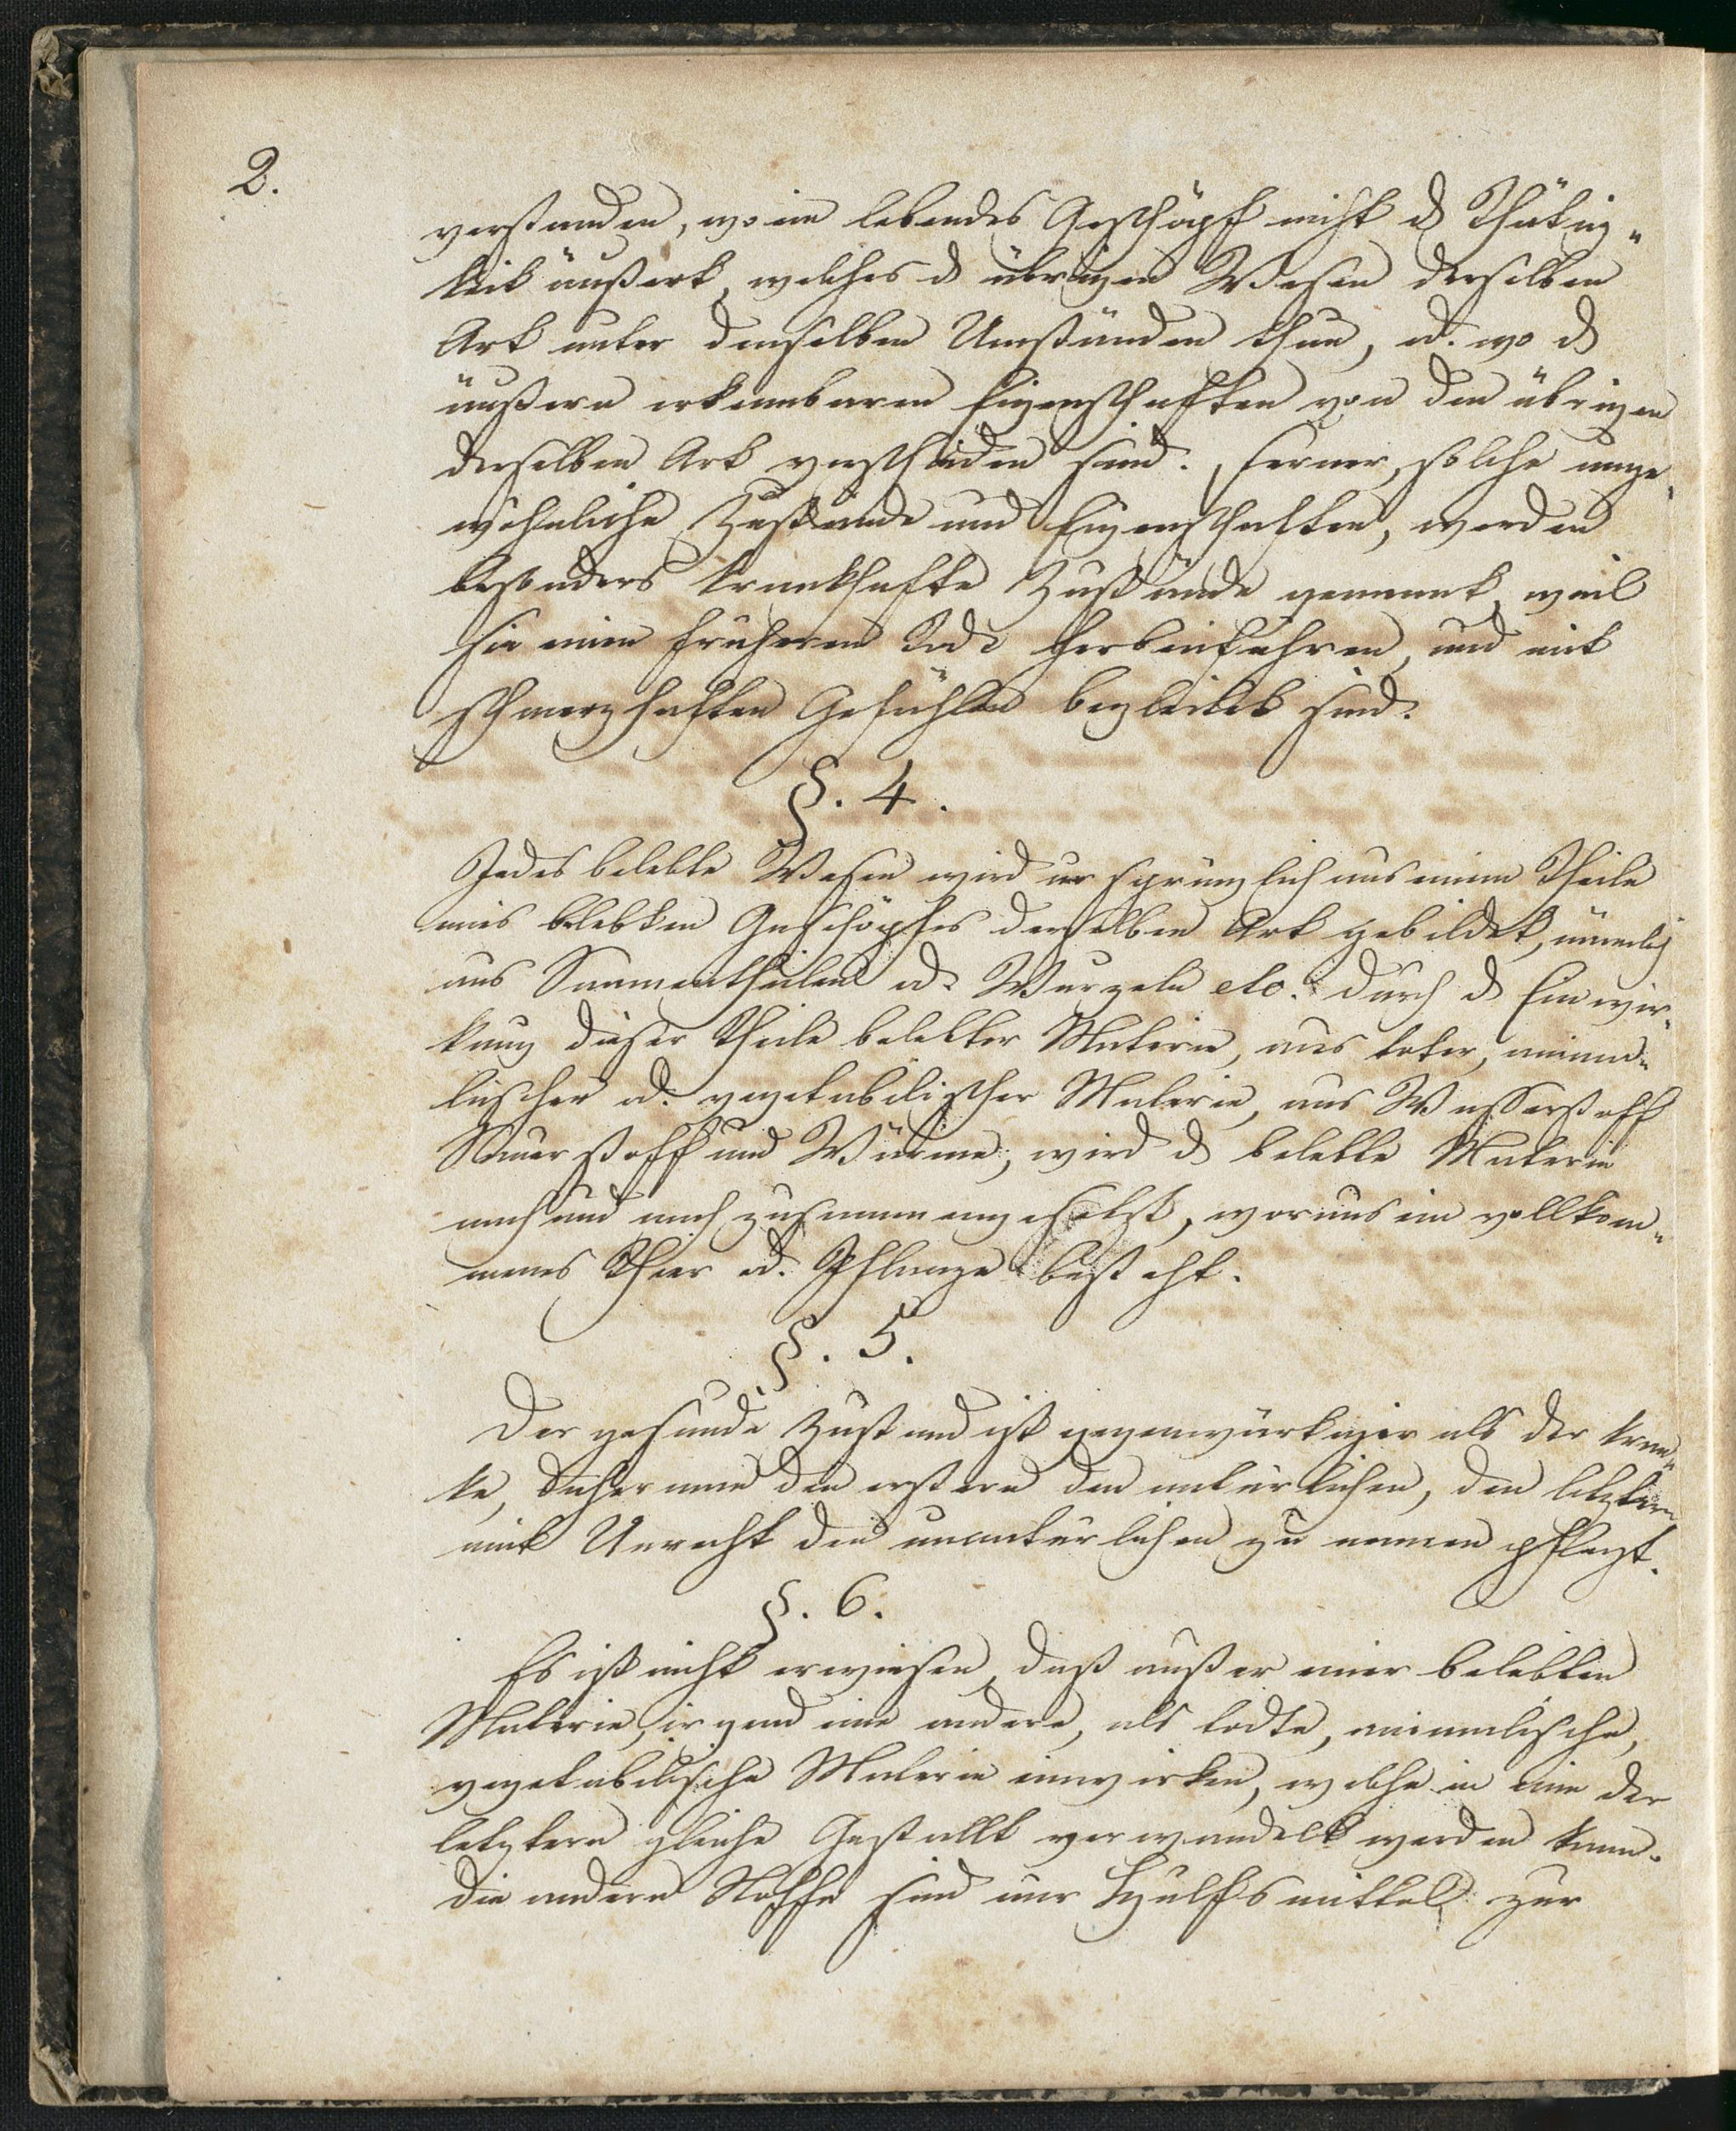 2.
verstanden, wo ein lebendes Geschöpf nicht d Thätig„
keit äußert, welches d übrigen Wesen derselben
Art unter denselben Umständen thun, od. wo d
äußern erkennbaren Eigenschaften von den übrigen
derselben Art verschieden sind. Ferner, solche unge„
wöhnliche Zustände und Eigenschaften, werden
besonders krankhafte Zustände genannt, weil
sie einen früheren Tod herbeiführen, und mit
schmerzhaften Gefühlen begleitet sind.
§. 4.
Jedes belebte Wesen wird ursprünglich aus einem Theile
eines belebten Geschöpfes derselben Art gebildet, nämlich
aus Saamentheilen od. Wurzeln etc. durch d Einwir„
kung dieser Theile belebter Materie, aus toter, anima„
lischer od. vegetabilischer Materie, aus Wasserstoff
Sauerstoff und Wärme, wird d belebte Materie
nach und nach zusammengesetzt, woraus ein vollkom„
menes Thier od. Pflanze besteht.
§. 5.
Der gesunde Zustand ist gegenwärtiger als der kran„
ke, daher man den erstern den natürlichen, den letztern
mit Unrecht den unnatürlichen zu nennen pflegt.
§. 6.
Es ist nicht erwiesen, daß außer einer belebten
Materie, irgend eine andere, als todte, animalische,
vegetabilische Materie einwirken, welche in eine der
letztern gleiche Gestallt verwandelt werden kann.
die andern Stoffe sind nur Hulfsmittel zur